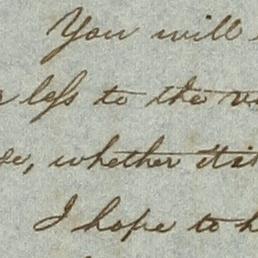 You will
less to the
whether it is
I hope to